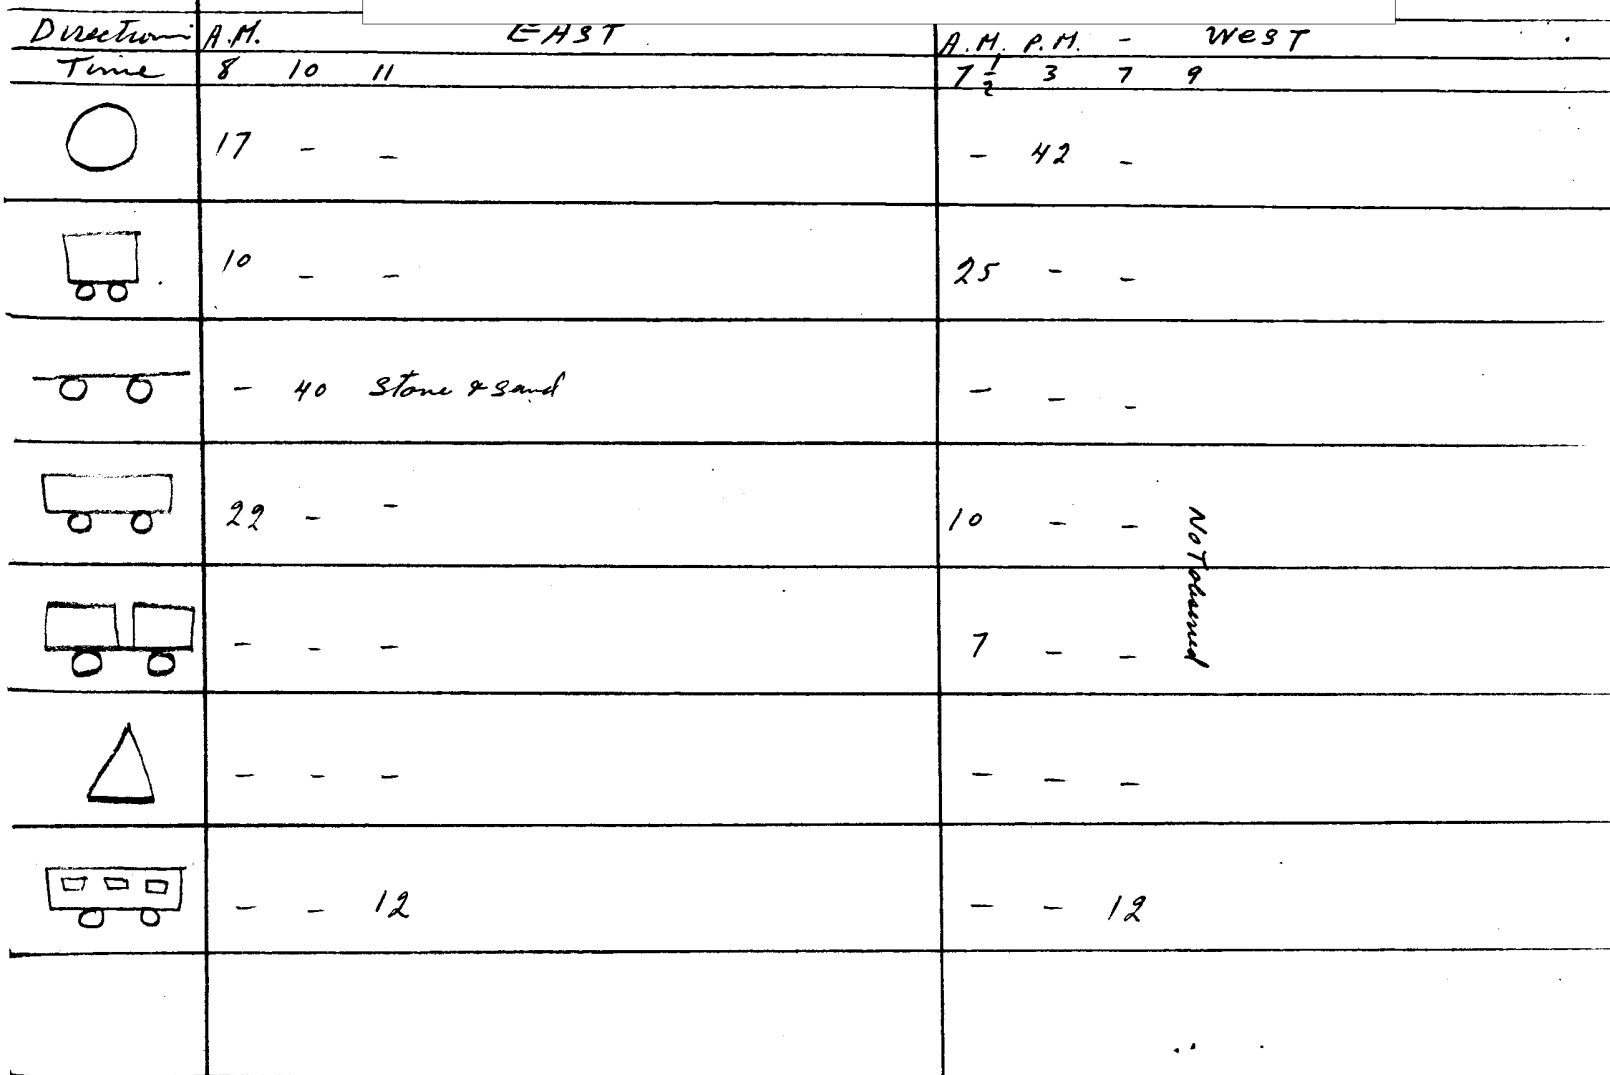 Direction A.M. EAST A.M. P.M. - West
Time 8 10 11 7 1/2 3 7 9
17 - - - 42 -
10 - - 25 - -
- 40 Stone & Sand - - -
22 - - 10 - -
- - - 7 - -
Not observed
- - - - - -
- - 12 - - 12